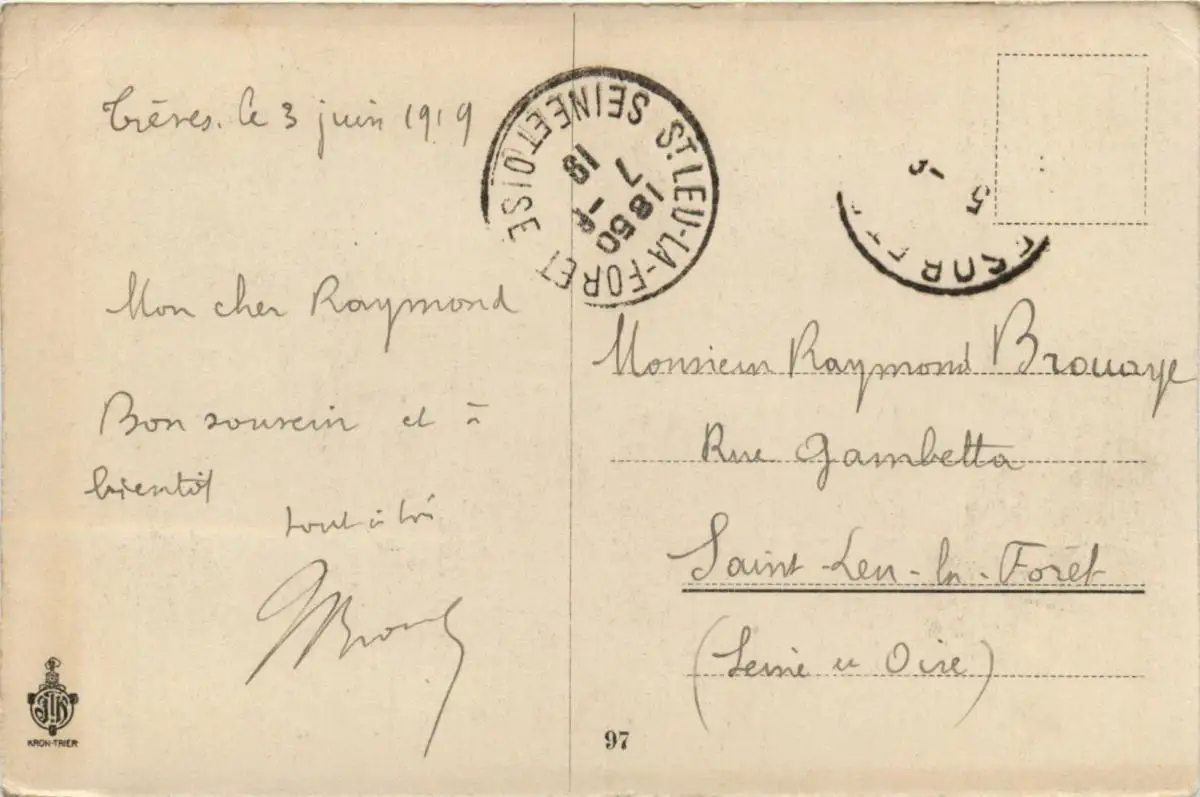 Trèves. le 3 juin 1919
Mon cher Raymond
Bon souvenir et à
bientôt
tout à toi
ST LEU-LA-FORET
SEINE ET OISE
1850
7 -
19
5 -
Monsieur Raymond Brouaye
Rue Gambetta
Saint-Leu-la-Forêt
(Seine et Oise)
KRON-TRIER
97